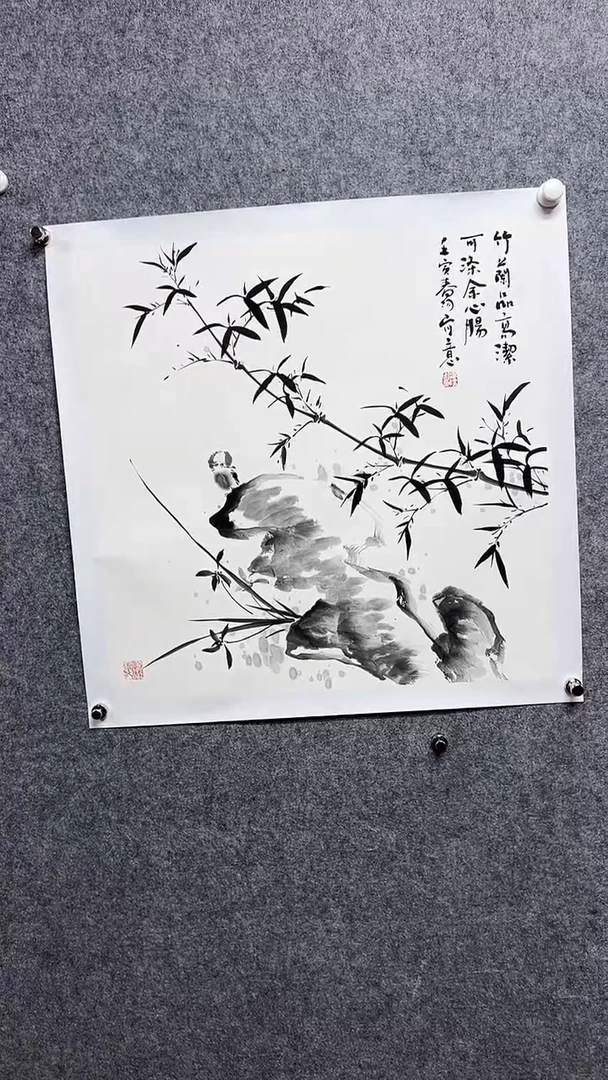 竹蘭品高潔
可涤余心腸
壬寅春寫意